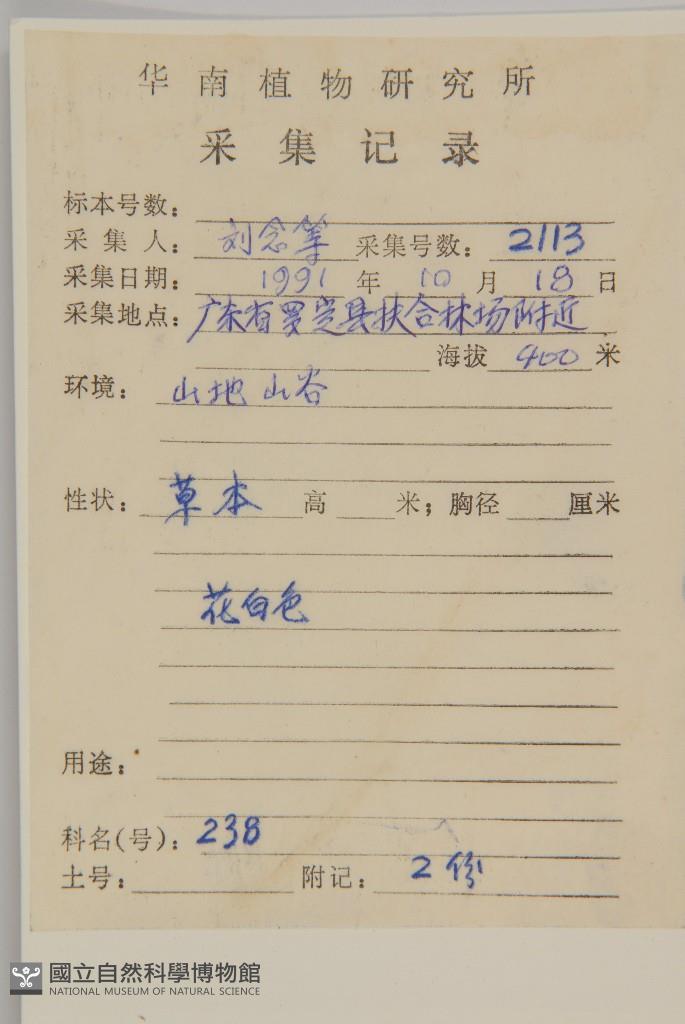 华南植物研究所
采集记录
标本号数：
采集人： 刘念等 采集号数： 2113
采集日期： 1991 年 10 月 18 日
采集地点：广东省罗定县扶合林场附近
海拔 400 米
环境： 山地 山谷
性状： 草本 高 米；胸径 厘米
花白色
用途：
科名(号)：238
土号： 附记： 2份
國立自然科學博物館
NATIONAL MUSEUM OF NATURAL SCIENCE